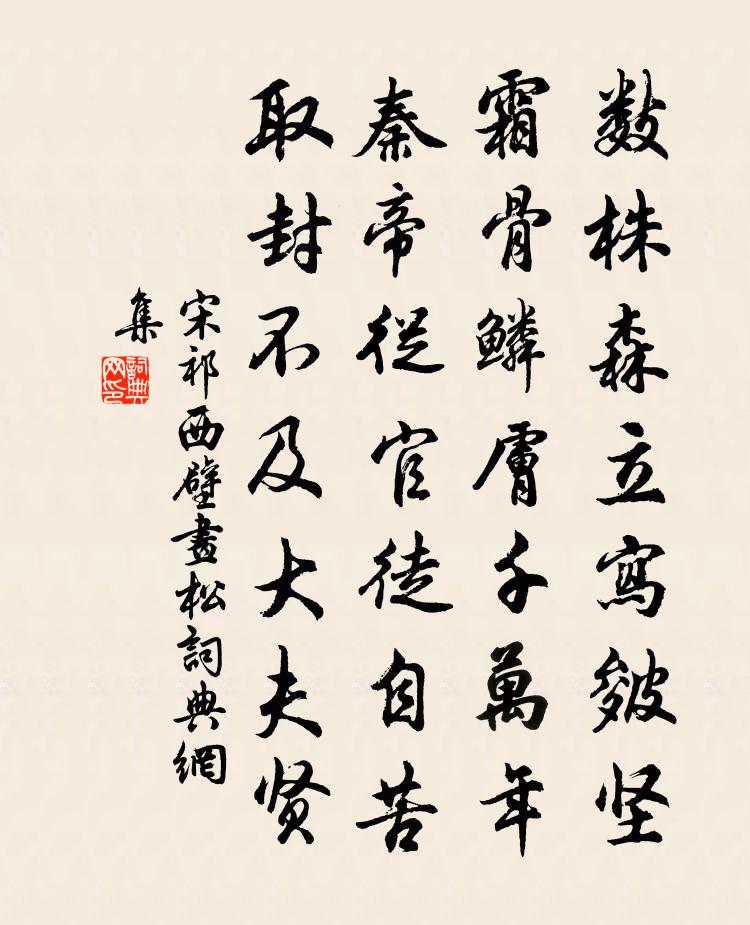 数株森立寫皴坚
霜骨鳞膚千萬年
秦帝從官徒自苦
取封不及大夫贤
宋祁西壁畫松詞典網
集
詞典
网印